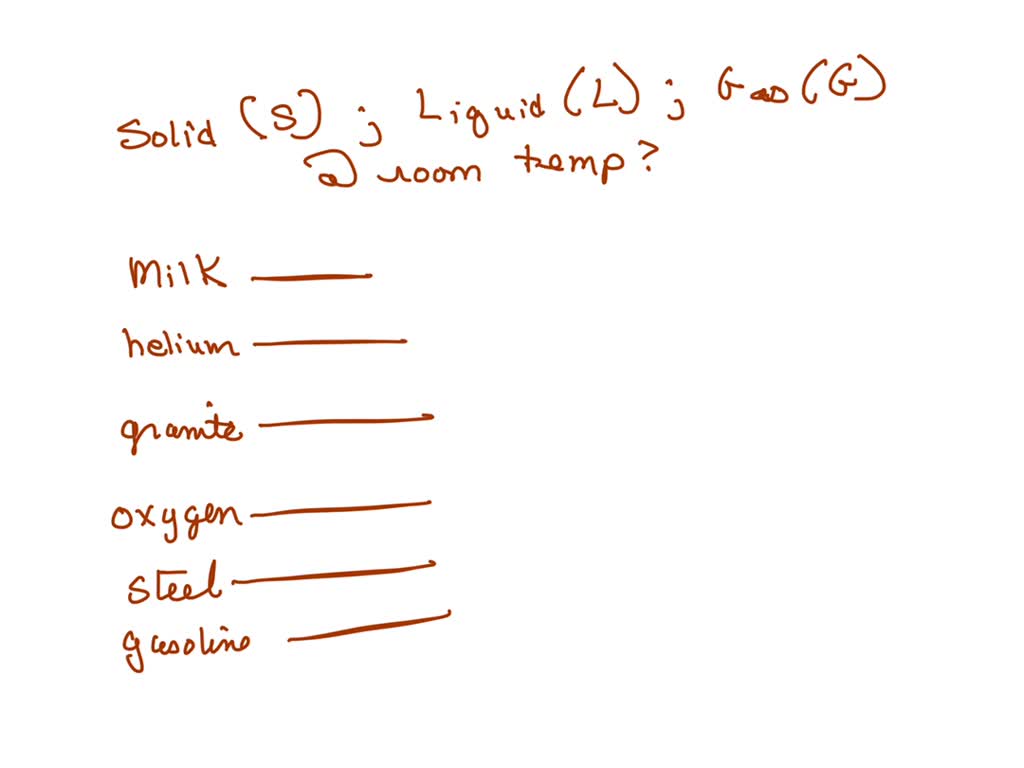 Solid (S) ; Liquid (L) ; Gas (G)
@ room temp?
Milk
helium
granite
oxygen
steel
gasoline